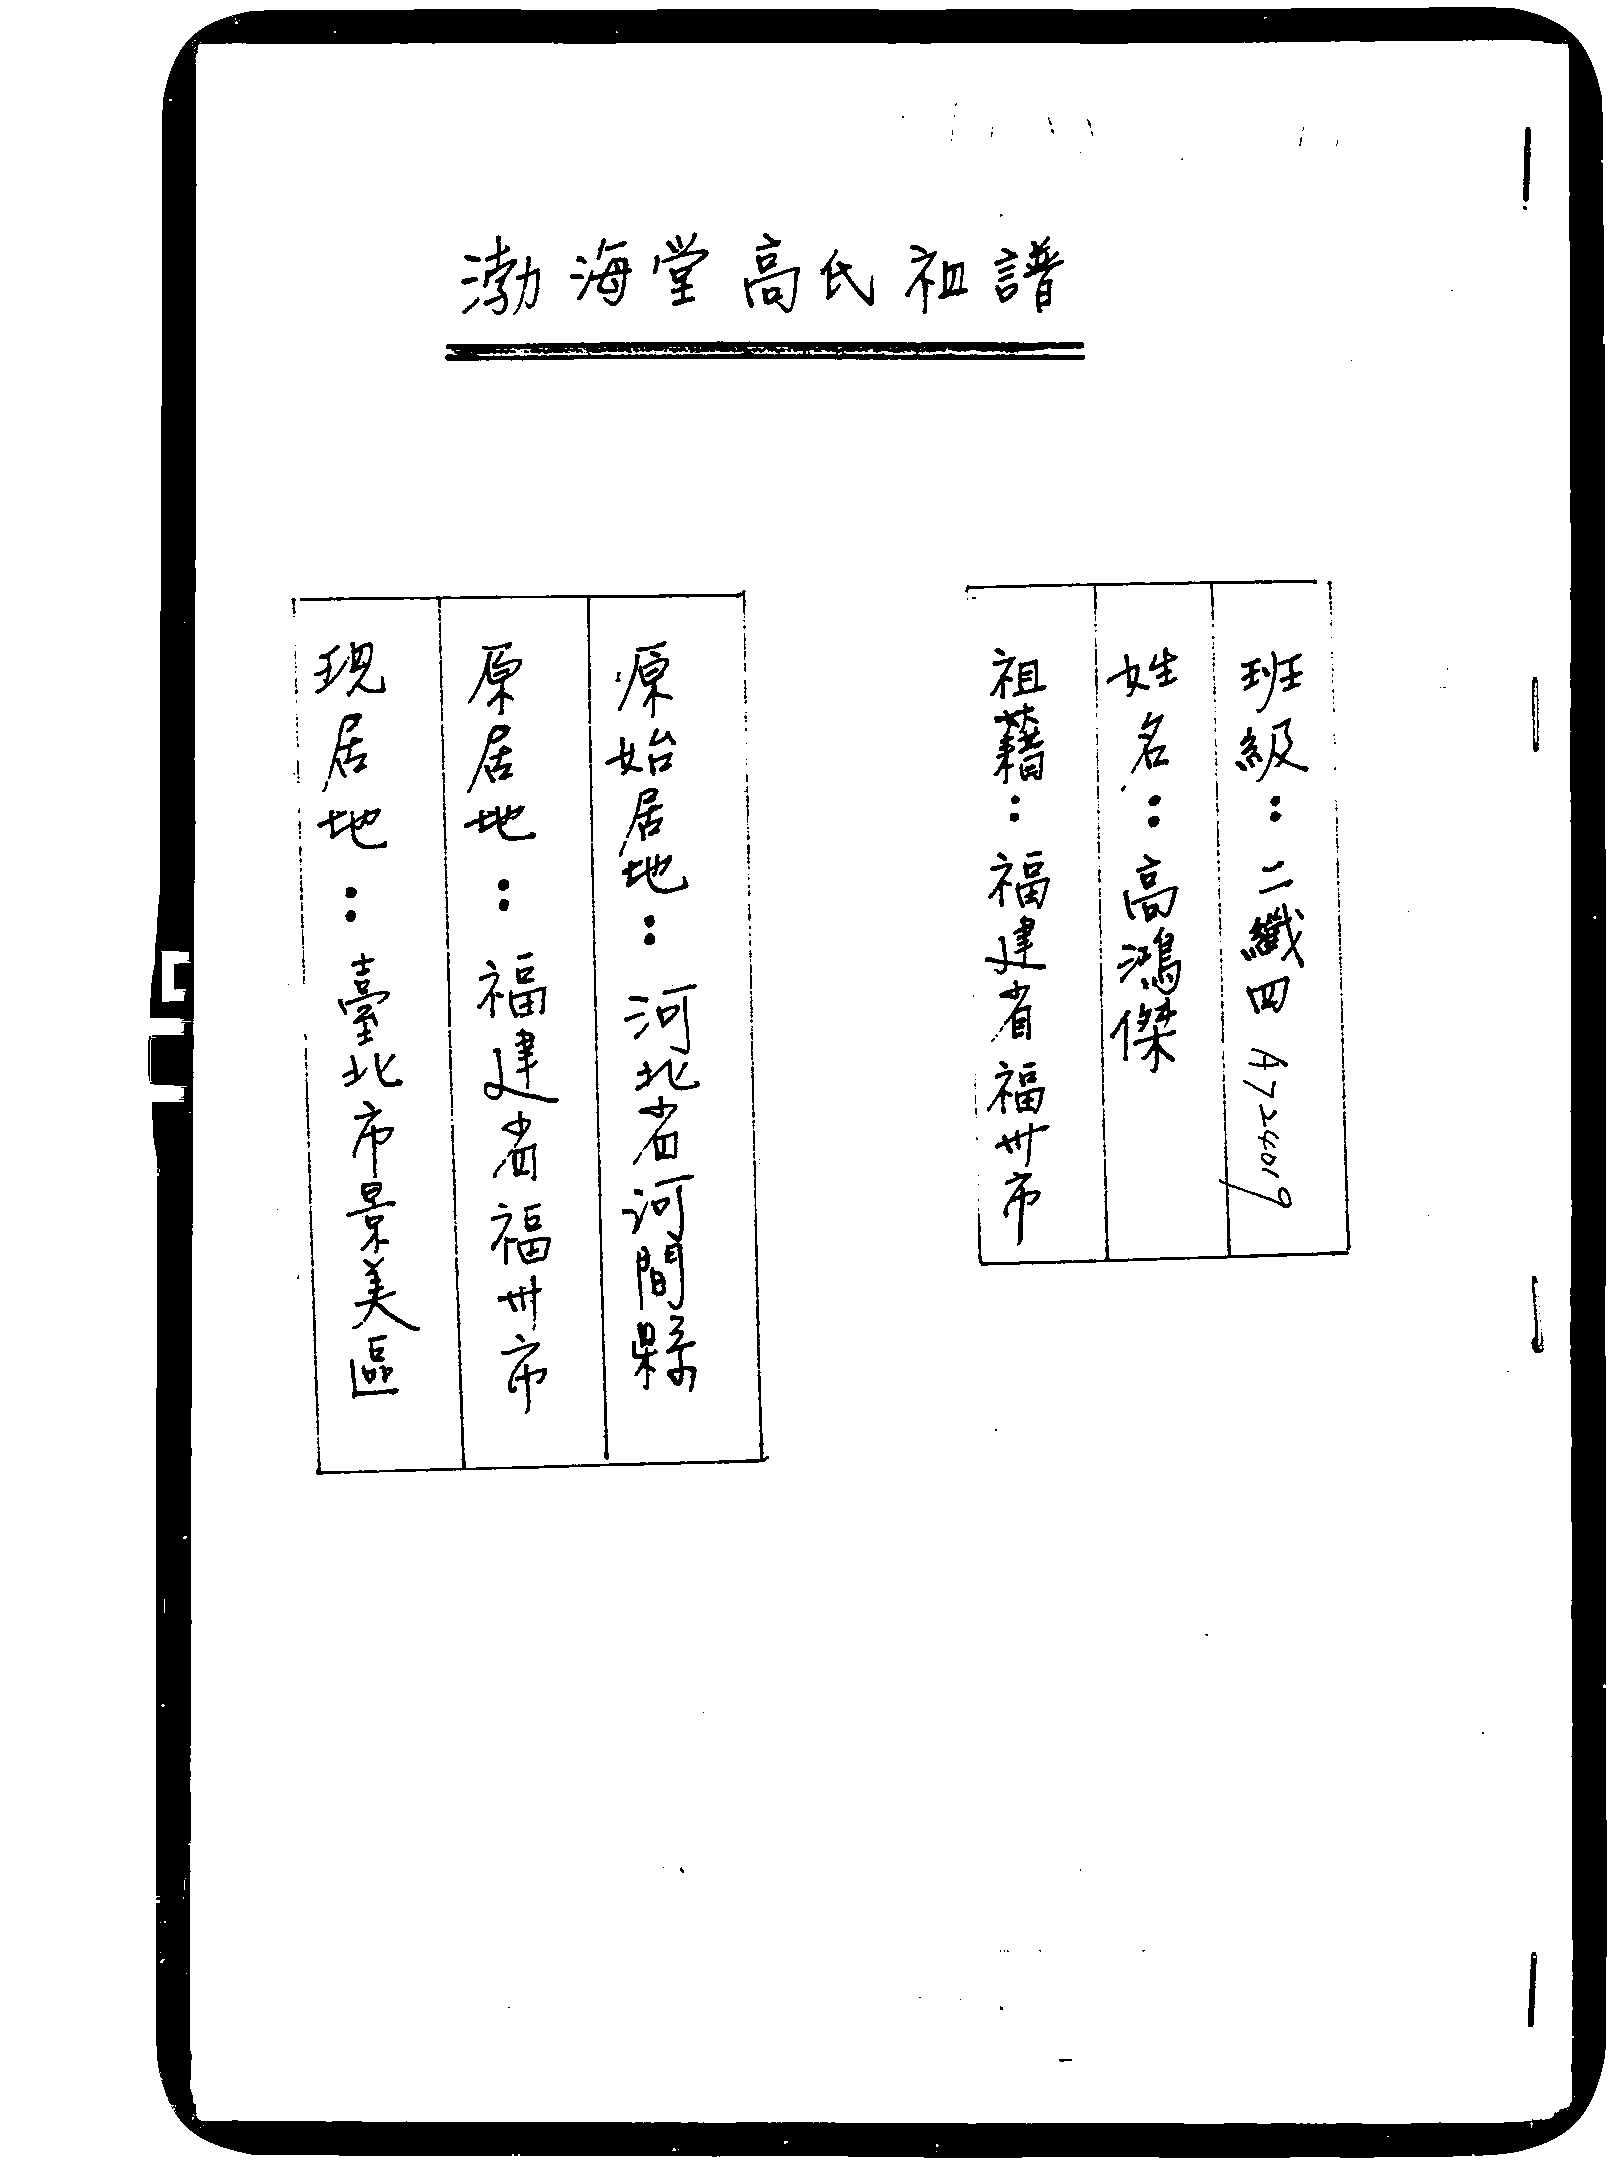 渤海堂高氏祖譜
班級：二纖四 A724019
姓名：高鴻傑
祖藉：福建省福州市
原始居地：河北省河間縣
原居地：福建省福州市
現居地：臺北市景美區